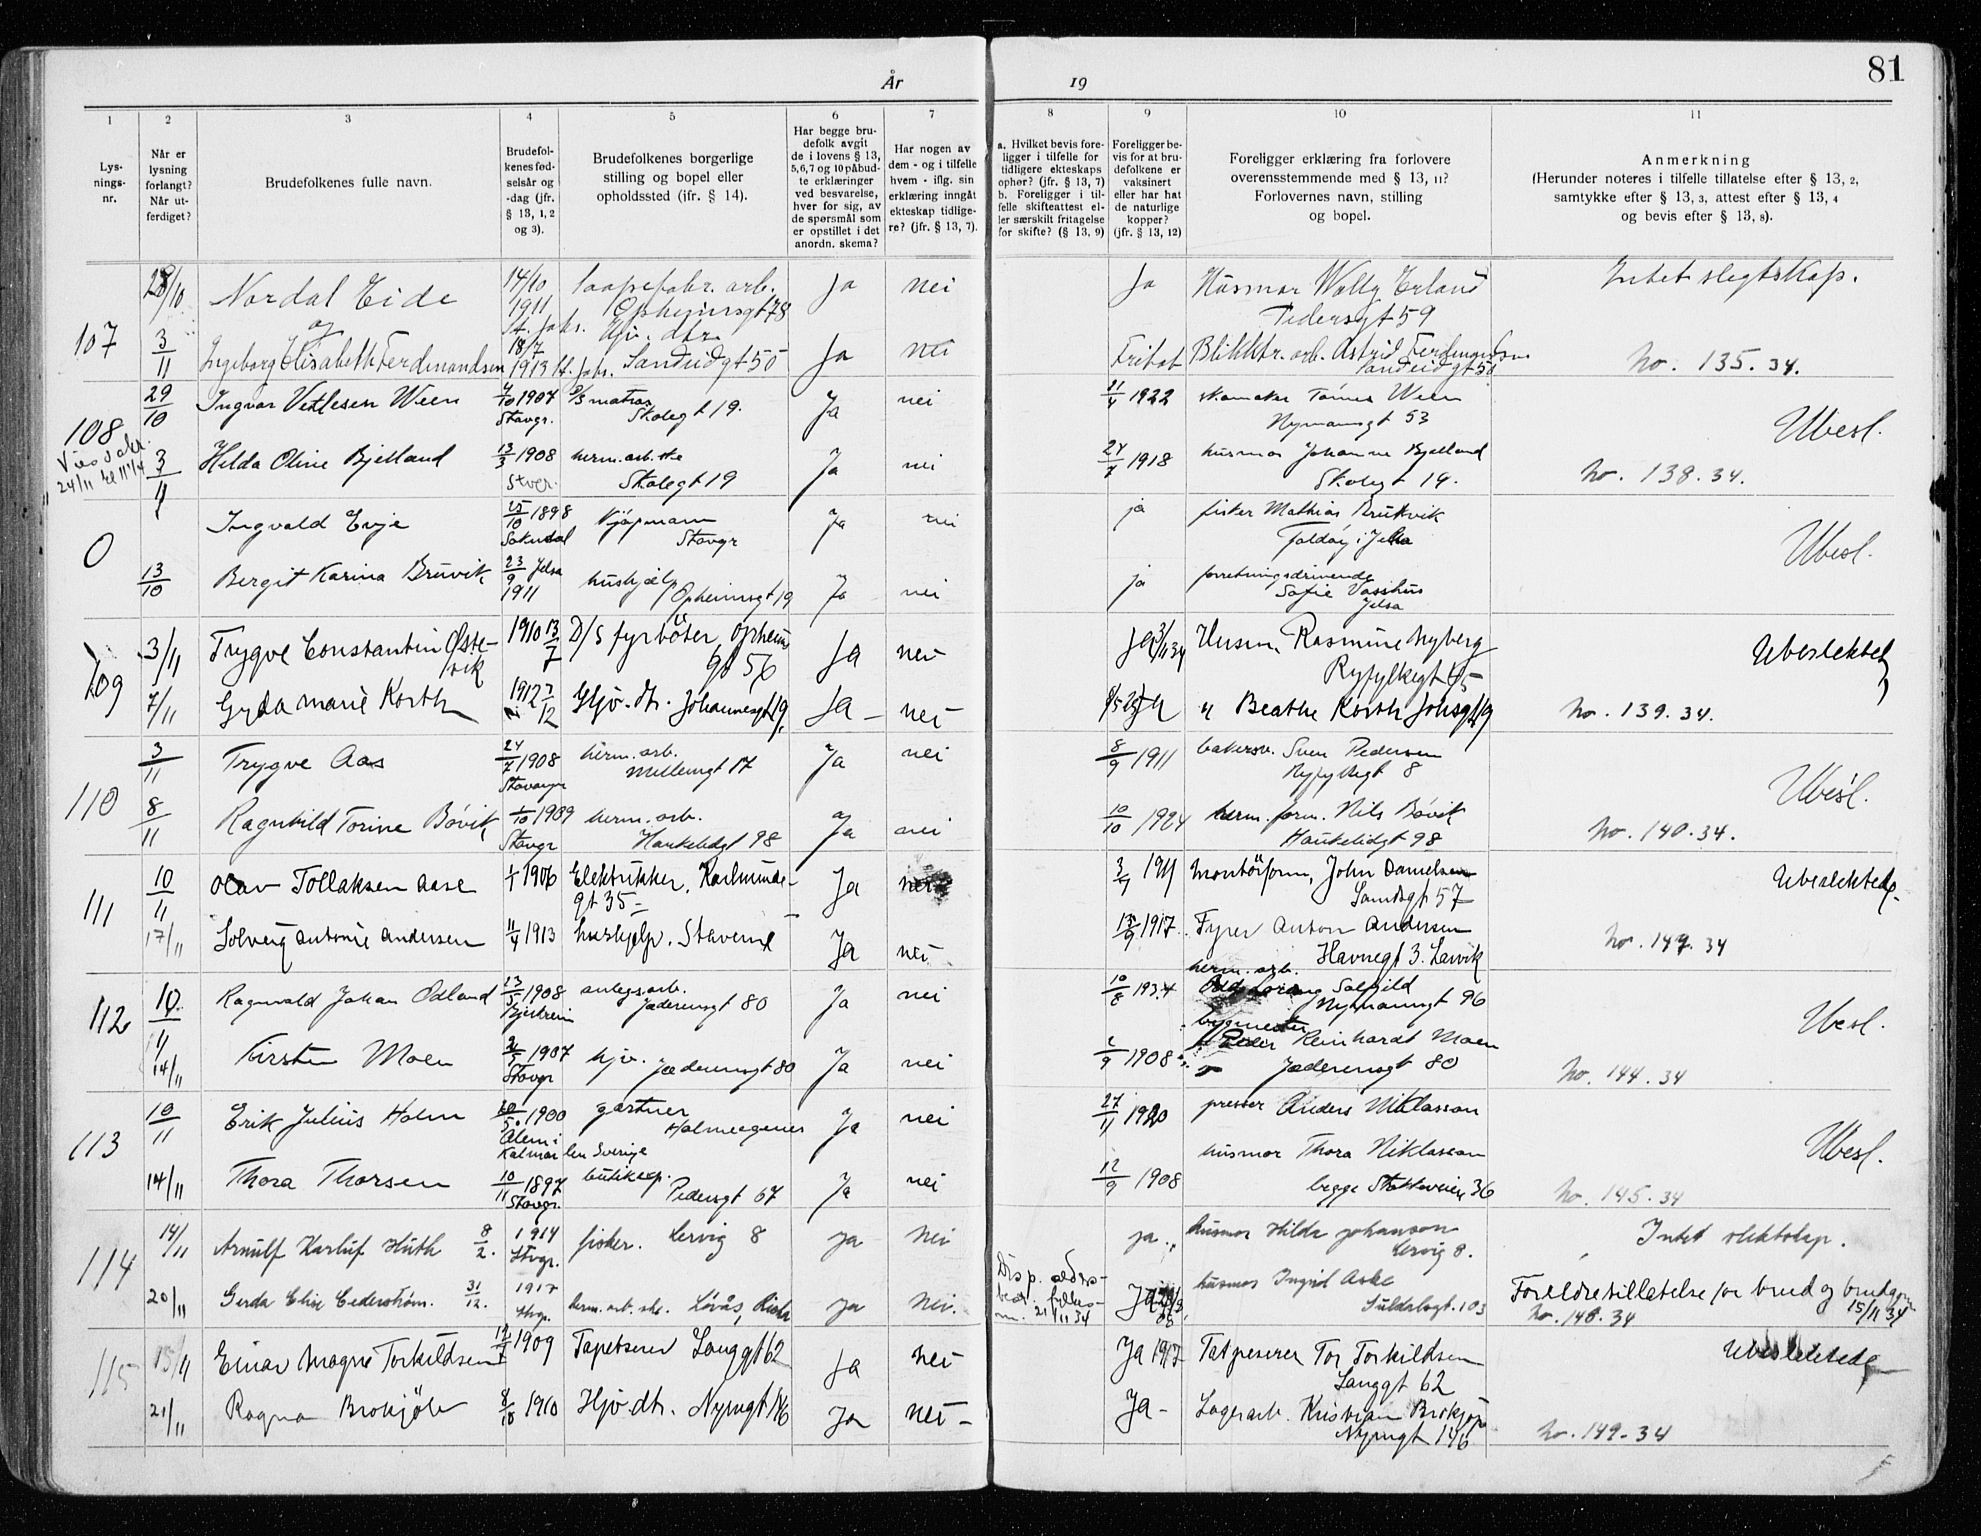 År 19
81
1 2 3 4 5 6 7 8 9 10 11
Lys-
nings-
nr.
Når er
lysning
forlangt?
Når ut-
ferdiget?
Brudefolkenes fulle navn.
Brudefol-
kenes fød-
selsår og
-dag (jfr.
§ 13, 1, 2
og 3).
Brudefolkenes borgerlige
stilling og bopel eller
opholdssted (ifr. § 14).
Har begge bru-
defolk avgit
de i lovens § 13,
5,6,7 og 10 påbud-
te erklæringer
ved besvarelse,
hver for sig, av
de spørsmål som
er opstillet i det
anordn. skema?
Har nogen av
dem - og i tilfelle
hvem - iflg. sin
erklæring inngåt
ekteskap tidlige-
re? (jfr. § 13, 7).
a. Hvilket bevis fore-
ligger i tilfelle for
tidligere ekteskaps
ophør? (jfr. § 13, 7)
b. Foreligger i til-
felle skifteattest el-
ler særskilt fritagelse
for skifte? (§ 13, 9)
Foreligger be-
vis for at bru-
defolkene er
vaksinert
eller har hat
de naturlige
kopper?
(jfr. § 13, 12)
Foreligger erklæring fra forlovere
overensstemmende med § 13, 11?
Forlovernes navn, stilling
og bopel.
Anmerkning
(Herunder noteres i tilfelle tillatelse efter § 13, 2,
samtykke efter § 13, 3, attest efter § 13, 4
og bevis efter § 13, 8).
107 Nordal Eide 14/10 1911 Opheimsgt 78 Ja nei Ja Husmor Wally Erland Pedersgt 59 Intet slegtskap.
og
3/11 Ingeborg Elisabeth Ferdinandsen 18/7 1913 St. Johs. Sandeidgt 50 Ja nei Blikktr. arb. Astrid Ferdinandsen Sandeidgt 50 No. 135.34.
108 29/10 Ingvar Vetlesen Ween 1907 Stavgr. D/S matros Skolegt 19. Ja nei 1922 skomaker Tønnes Ween Nymansgt 53 Ubesl.
24/11
3/11 Hilda Oline Bjelland 13/3 1908 herm. arb. ske Skolegt 19 Ja nei 1918 husmor Johanne Bjelland Skolegt 19. No. 138.34.
0 Ingvald Evje 1898 Sokndal Kjøpmann Stavgr Ja nei ja fisker Mathias Bruvik Foldøy i Jelsa Ubesl.
13/10 Bergit Karina Bruvik 23/9 Jelsa 1911 hushjelp Opheimsgt 19 Ja nei ja forretningsdrivende Sofie Vasshus Jelsa
109 3/11 Trygve Constantin Østevik 1910 13/7 D/S fyrbøter, Opheimsgt 56 Ja nei Ja Husm. Rasmine Nyberg Ryfylkegt Ubeslektet
7/11 Gyda Marie Korth 1912 Hjv. dtr. Johannesgt 19 Ja nei " Beathe Korth Johsgt 19 No. 139.34.
110 3/11 Trygve Aas 24/7 1908 Stavanger herm. arb. Mellemgt 17 Ja nei 8/9 1911 bakersv. Sven Pedersen Ryfylkegt 8 Ubesl.
8/11 Ragnhild Torine Bøvik 1909 Stavgr herm. arb. Haukelidgt 98 Ja nei 10/10 1924 herm. form. Nils Bøvik Haukelidgt 98 No. 140.34.
111 10/11 Olav Tollaksen Aase 1/1 1906 Elektrikker, Karlmindegt 35 Ja nei Montörform, John Danielsen Sandsgt 57 Ubeslektede
17/11 Solveig Antonie Andersen 11/4 1913 hushjelp. Stavern Ja nei 1917 Fyrer Anton Andersen Havnegt 3. Larvik No. 147.34
112 10/11 Ragnvald Johan Odland 13/5 1908 Bjerkreim anlegsarb. Jæderensgt 80 Ja nei 10/8 1934 herm. arb. Solfjld Nymansgt 96 Ubesl.
14/11 Kirsten Moen 1907 Stavgr hjv. Jæderensgt 80 Ja nei 1908 bygmester Peder Reinhardt Moen Jæderensgt 80 No. 144.34
113 10/11 Erik Julius Holm 1900 Ålem i Kalmar len Sverige gartner Holmeegenes Ja nei 27/11 1920 presser Anders Niklasson Ubesl.
14/11 Thora Thorsen 10/11 1897 Stavgr. butikeksp. Pedersgt 67 Ja nei 12/9 1908 husmor Thora Niklasson begge Stokkaveien 36 No. 145.34
114 14/11 Arnulf Karluf Huth 8/2. 1914 Stvgr. fisker. Lervig 8 ja Nei ja. husmor Hilda Johanson Lervig 8. Intet slektskap.
20/11 Gerda Elise Cederstrøm. 31/12. 1917 Stvgr. herm. arb. ske. ja Nei. Disp. alders- 21/11 34 Ja husmor Ingrid Aske Suldalsgt. 103 Foreldretillatelse for brud og brudgom 15/11 34 No. 148.34
115 15/11 Einar Magne Torkildsen 1909 Tapetserer Langgt 62 Ja nei Ja 1917 Tapeserer Tor Torkildsen Langgt 62 Ubeslektede
21/11 Ragna Brokjøb 8/10 1910 Hjv. dtr. Nymgt 146 Ja nei Ja Lagerarb. Kristian Brokjøp Nymgt 146 No. 149-34